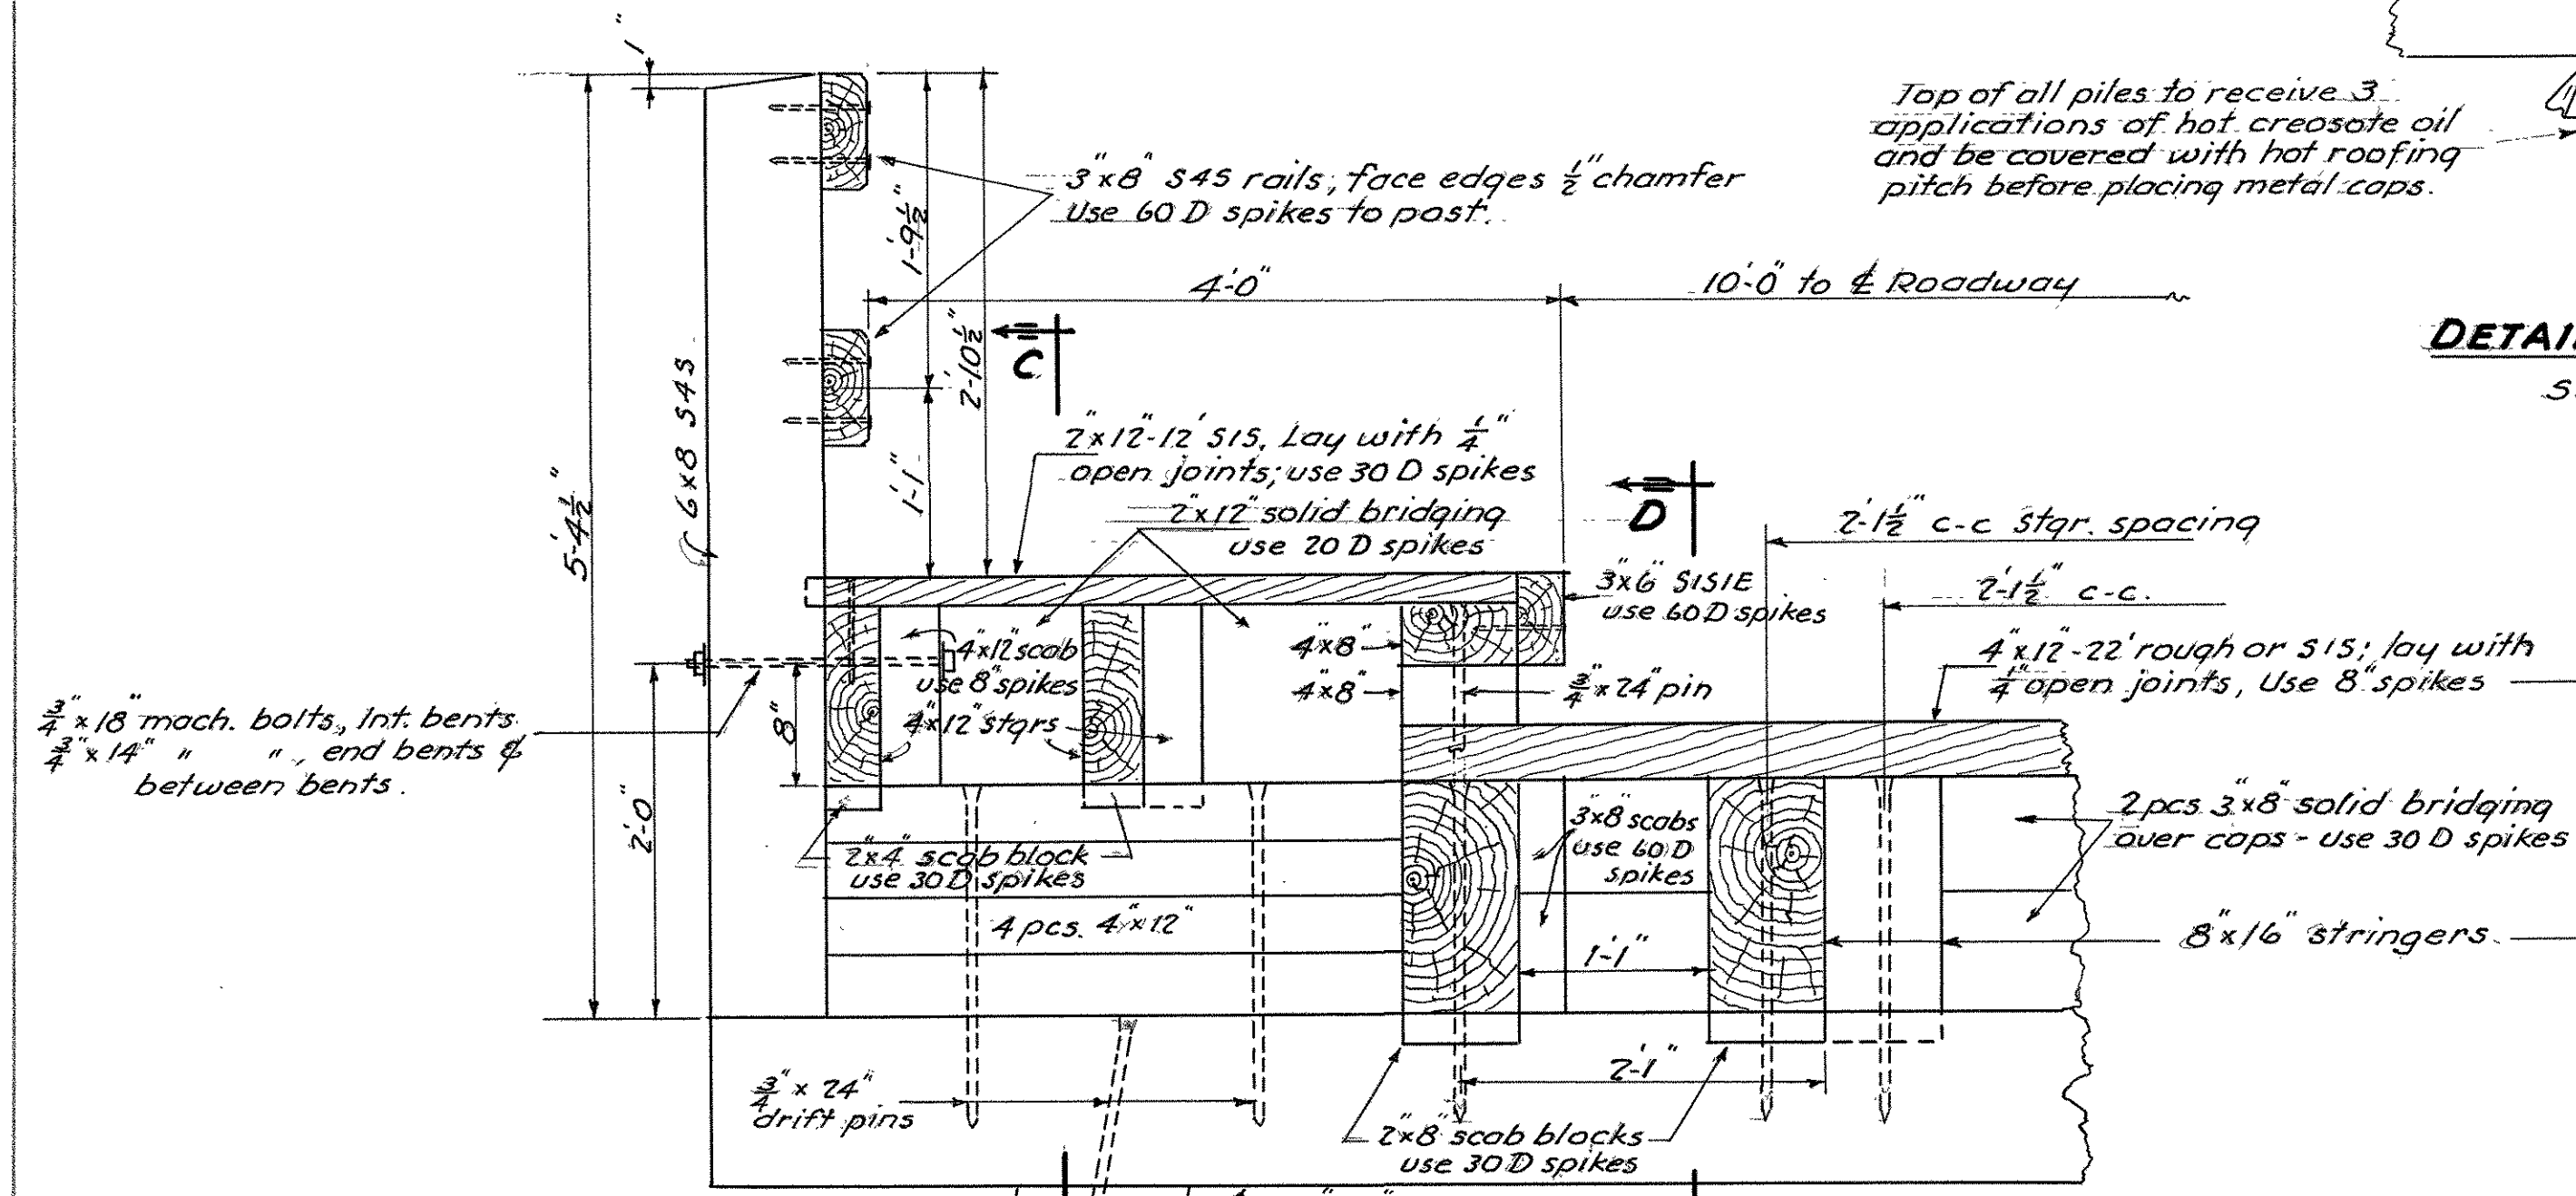 1"
Top of all piles to receive 3
applications of hot creosote oil
and be covered with hot roofing
pitch before placing metal caps.
3"x8" S4S rails, face edges 1/2" chamfer
Use 60 D spikes to post.
1'-9 1/2"
4'-0"
10'-0" to ℄ Roadway
2'-10 1/2"
C
6x8 S4S
5'-4 1/2"
1'-1"
2"x12"-12' S1S. Lay with 1/4"
open joints; use 30 D spikes
2"x12" solid bridging
use 20 D spikes
D
2'-1 1/2" c-c Stgr. spacing
2'-1 1/2" c-c.
3"x6" S1S1E
use 60 D spikes
4"x12"-22' rough or S1S; lay with
1/4" open joints, Use 8" spikes
4"x12" scab
use 8" spikes
4"x8"
4"x8"
3/4"x24" pin
4"x12" stgrs
8"
3/4"x18" mach. bolts, Int. bents
3/4"x14" " ", end bents &
between bents.
2'-0"
2"x4" scab block
use 30 D spikes
3"x8" scabs
use 60 D
spikes
2 pcs 3"x8" solid bridging
over caps - use 30 D spikes
4 pcs. 4"x12"
1'-1"
8"x16" stringers.
2'-1"
3/4" x 24"
drift pins
2"x8" scab blocks
use 30 D spikes